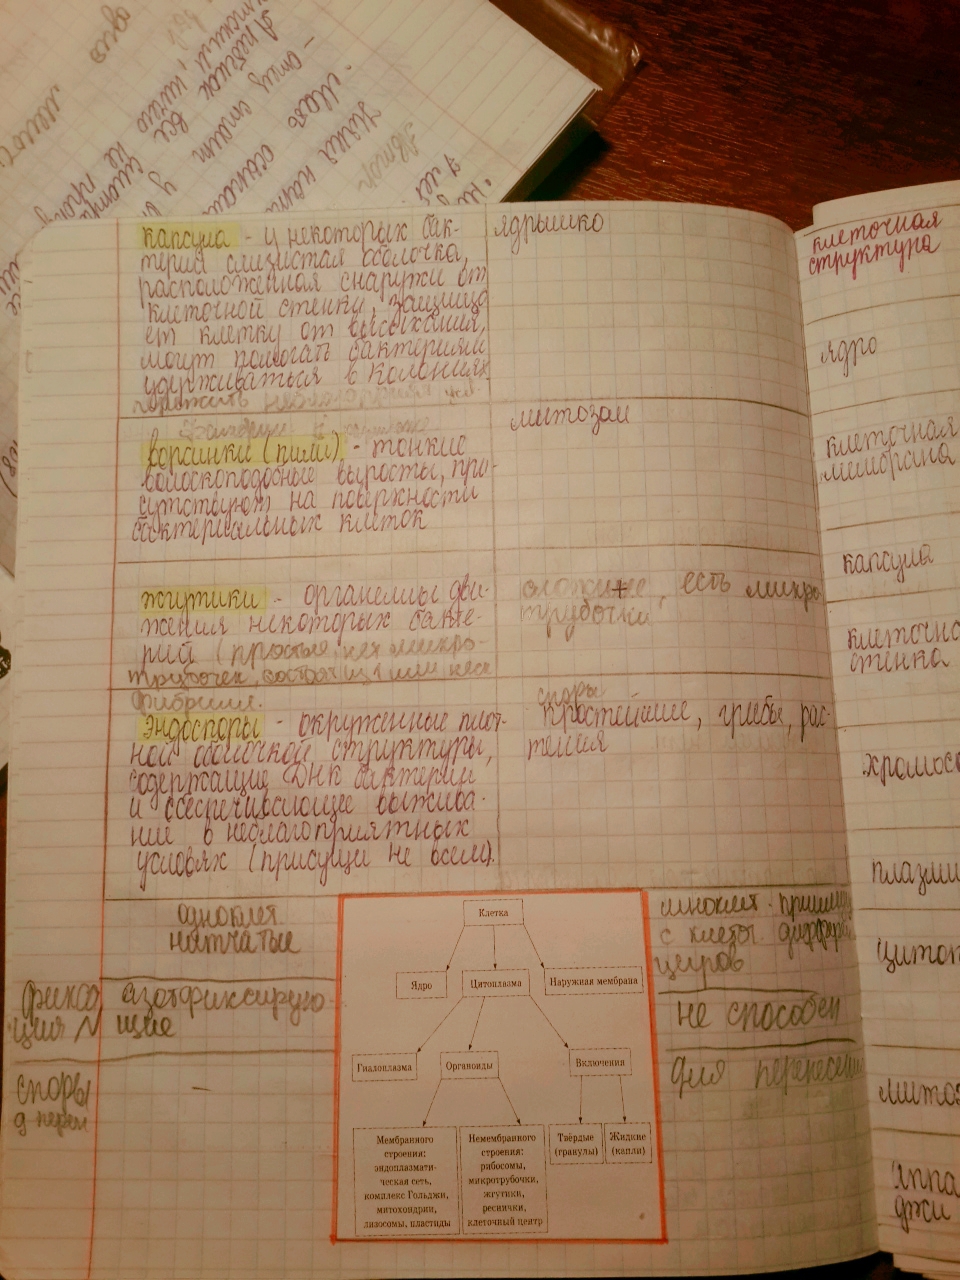 капсула - у некоторых бак-
терий слизистая оболочка,
расположенная снаружи от
клеточной стенки, защища
ет клетку от высыхания,
могут помогать бактериям
удерживаться в колониях
пережить
ворсинки (пили) - тонкие
волоскоподобные выросты, при-
сутствуют на поверхности
бактериальных клеток
жгутики - органеллы дви-
жения некоторых бакте-
рий (простые, нет микро-
трубочек, состоят из 1 или неск
фибрилл.
эндоспоры - окруженные плот-
ной оболочкой структуры,
содержащие ДНК бактерии
и обеспечивающее выжива-
ние в неблагоприятных
условях (присущи не всем).
ядрышко
митозом
есть микро
трубочки
споры
простейшие, грибы, рас-
тения
одноклет
нитчатые
фикса
ция N
азотфиксирую-
щие
споры
д перен
-
Клетка
Ядро
Цитоплазма
Наружная мембрана
Гиалоплазма
Органоиды
Включения
Мембранного
строения:
эндоплазмати-
ческая сеть,
комплекс Гольджи,
митохондрии,
лизосомы, пластиды
Немембранного
строения:
рибосомы,
микротрубочки,
жгутики,
реснички,
клеточный центр
Твёрдые
(гранулы)
Жидкие
(капли)
с клеты.
не способен
для
клеточная
структура
ядро
клеточная
мембрана
капсула
клеточн
стенка
хромосо
плазми
цитоп
митоз
аппа
джи